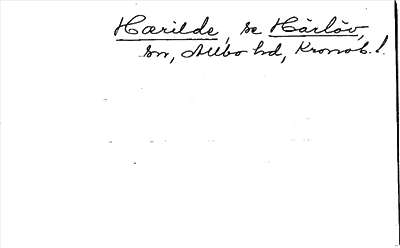 Hærilde, se Härlöv,
sn, Allbo hd, Kronob. l.